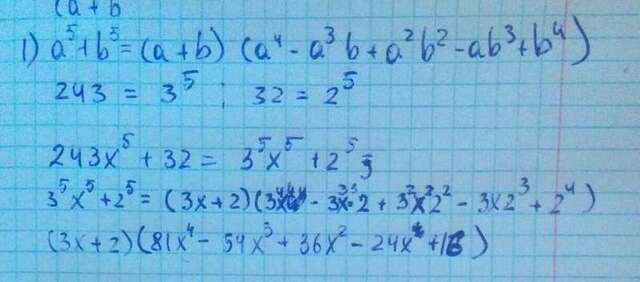 (a + b
1) a⁵+b⁵ = (a + b) (a⁴ - a³ b + a² b² - ab³ + b⁴)
243 = 3⁵ ; 32 = 2⁵
243x⁵ + 32 = 3⁵x⁵ + 2⁵;
3⁵x⁵ + 2⁵ = (3x + 2)(3⁴x⁴ - 3³x³2 + 3²x²2² - 3x2³ + 2⁴)
(3x + 2)(81x⁴ - 54x³ + 36x² - 24x + 16)